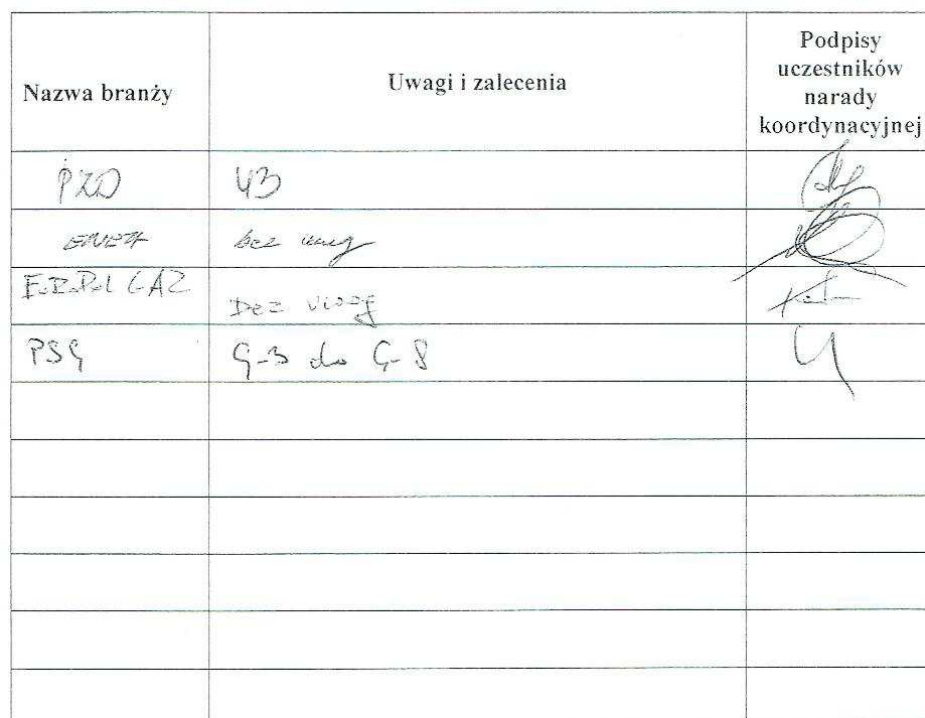 Nazwa branży
Uwagi i zalecenia
Podpisy
uczestników
narady
koordynacyjnej
PZD 43
ENEA bez uwag
EuRoPol GAZ bez uwag
PSG G-3 do G-8